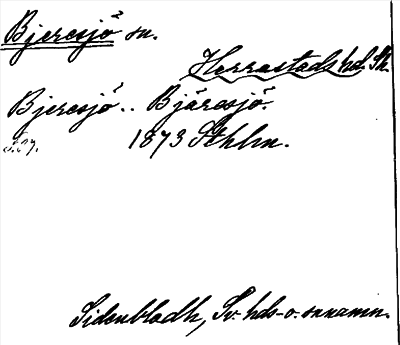 Bjeresjö sn.
Herrestads hd. Sk.
Bjeresjö .. Bjäresjö.
S. 27. 1873 Sthlm.
Sidenbladh, Sv. hds- o. snnamn.